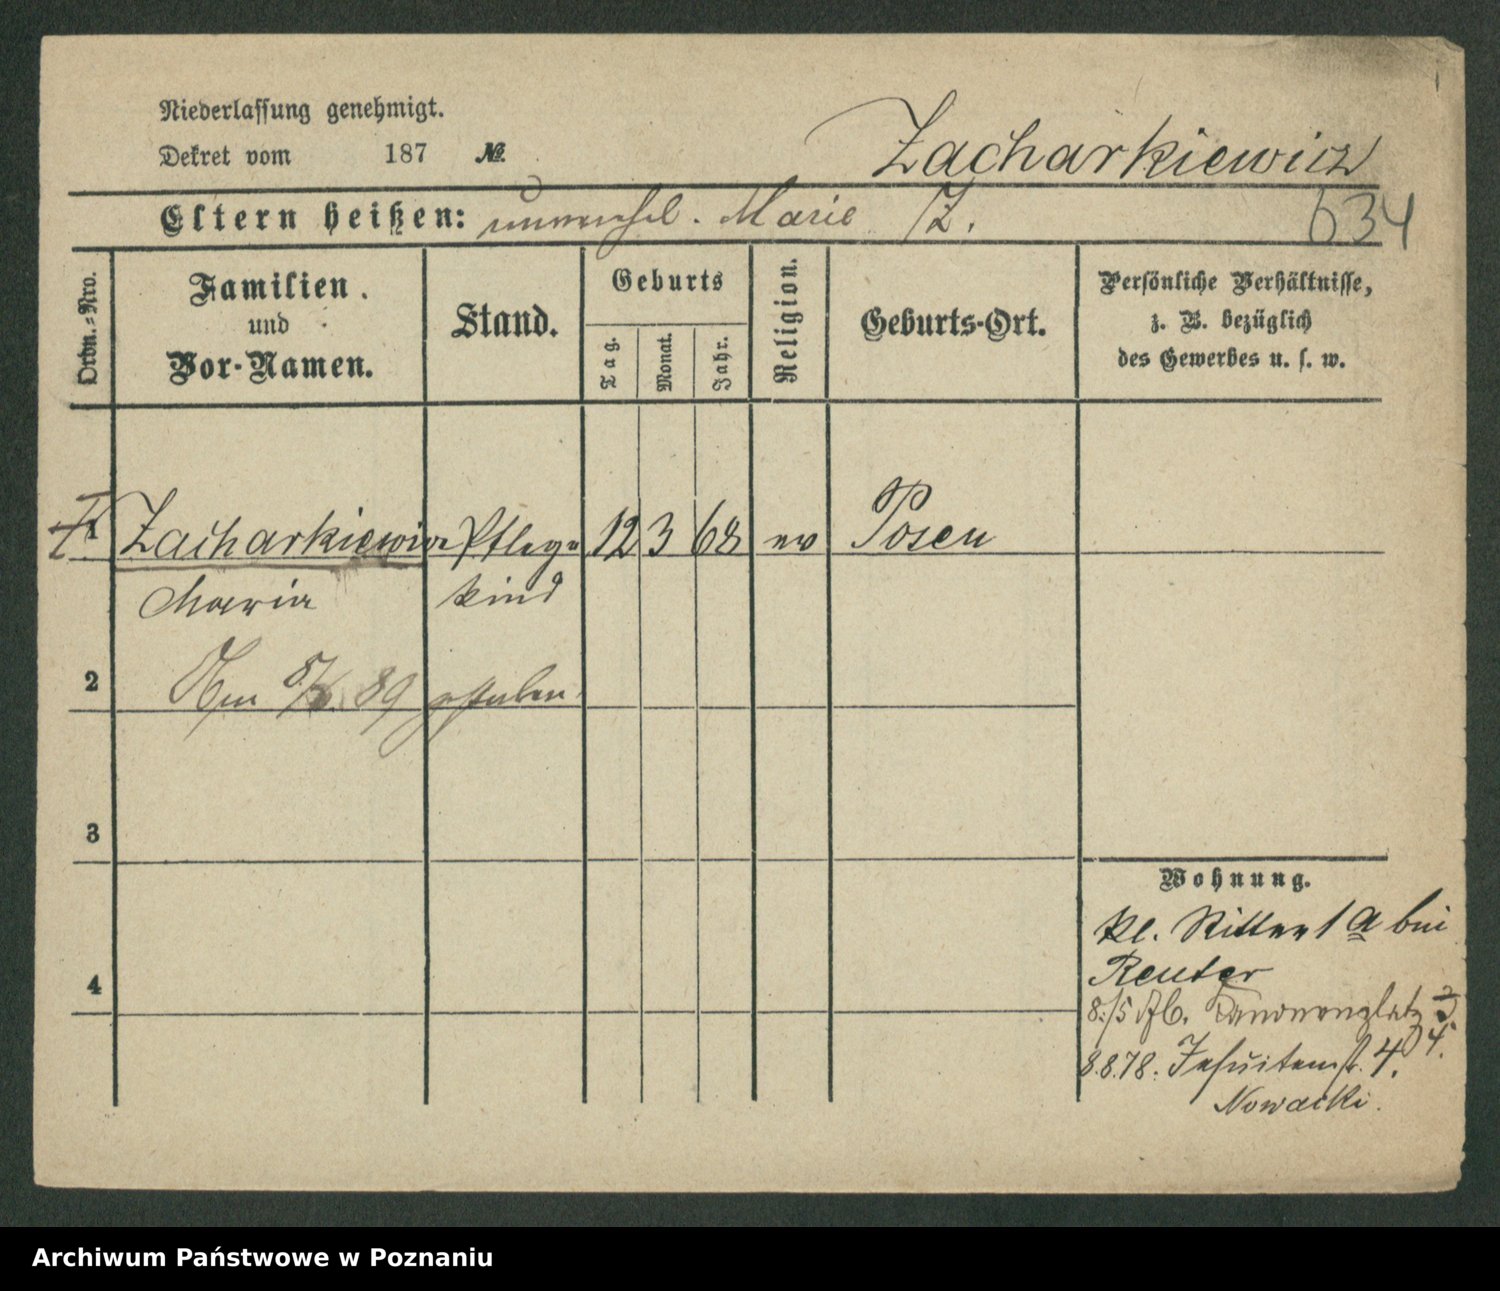 Niederlassung genehmigt.
Dekret vom 187 №.
Zacharkiewicz
Eltern heißen: unverehel. Marie Z.
634
Ordn.-Nro.
Familien
und
Vor-Namen.
Stand.
Geburts
Tag.
Monat.
Jahr.
Religion.
Geburts-Ort.
Persönliche Verhältnisse,
z. B. bezüglich
des Gewerbes u. s. w.
1 Zacharkiewicz Pflege 12 3 68 ev Posen
Maria kind
2 Am 89 gestorben.
3
4
Wohnung.
kl. Ritter 1 a bei
Reuter
8./5 76. Kanonenplatz
8.8.78. Jesuitenstr. 4.
Nowacki.
Archiwum Państwowe w Poznaniu